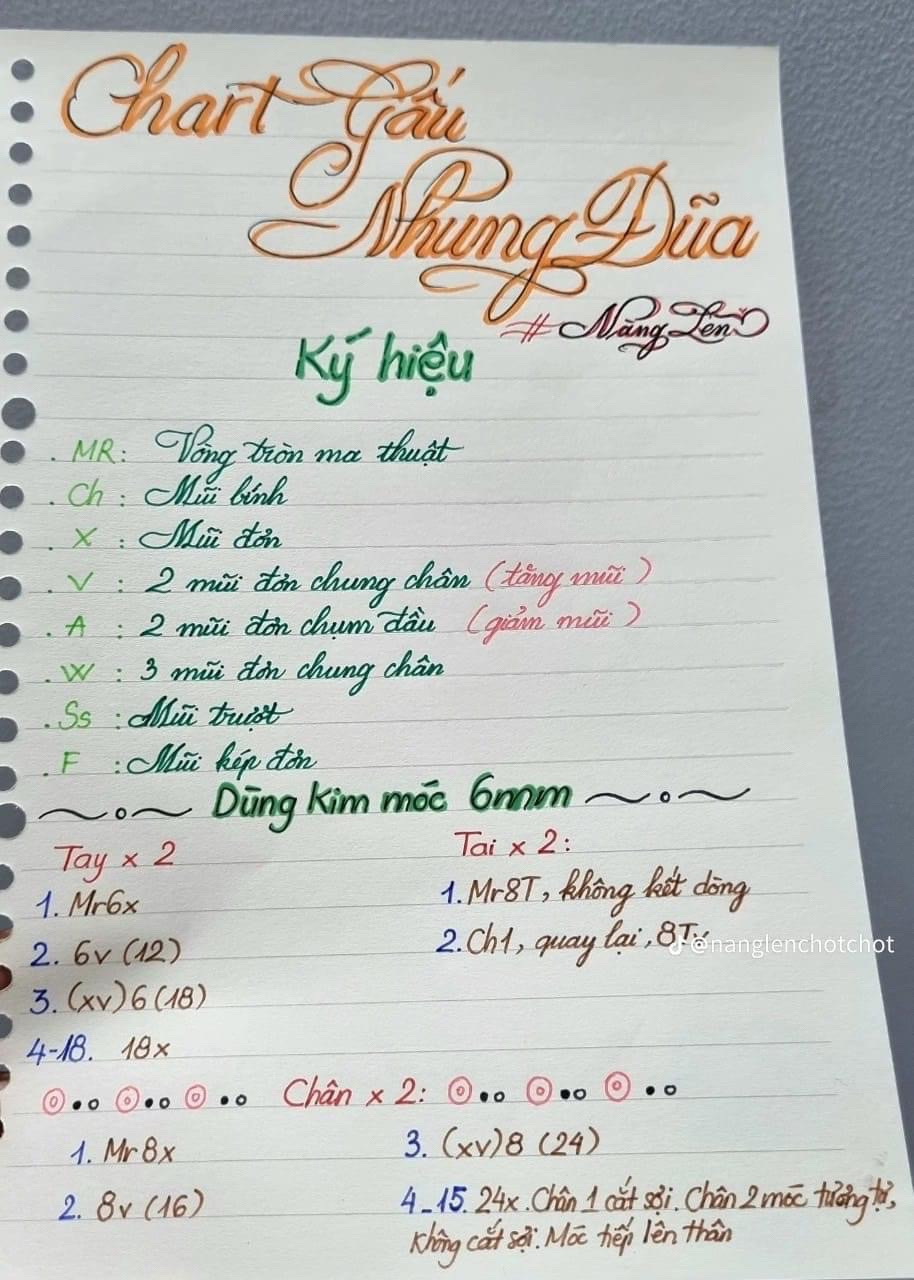 Chart Gấu
Nhung Đũa
# Nàng Len
Ký hiệu
. MR: Vòng tròn ma thuật
. Ch : Mũi bính
. X : Mũi đơn
. V : 2 mũi đơn chung chân (tăng mũi)
. A : 2 mũi đơn chụm đầu (giảm mũi)
. W : 3 mũi đơn chung chân
. Ss : Mũi trượt
. F : Mũi kép đơn
Dùng Kim móc 6mm
Tay x 2
1. Mr6x
2. 6v (12)
3. (xv)6 (18)
4-18. 18x
Tai x 2:
1. Mr8T, không kết dòng
2. Ch1, quay lại, 8Tv
@nanglenchotchot
Chân x 2:
1. Mr8x
2. 8v (16)
3. (xv)8 (24)
4-15. 24x. Chân 1 cắt sợi. Chân 2 móc tương tự,
không cắt sợi. Móc tiếp lên thân